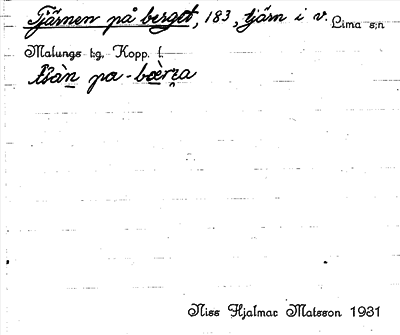 Tjärnen på berget, 183, tjärn i v. Lima s:n
Malungs tg, Kopp. l.
pa - 
Niss Hjalmar Matsson 1931